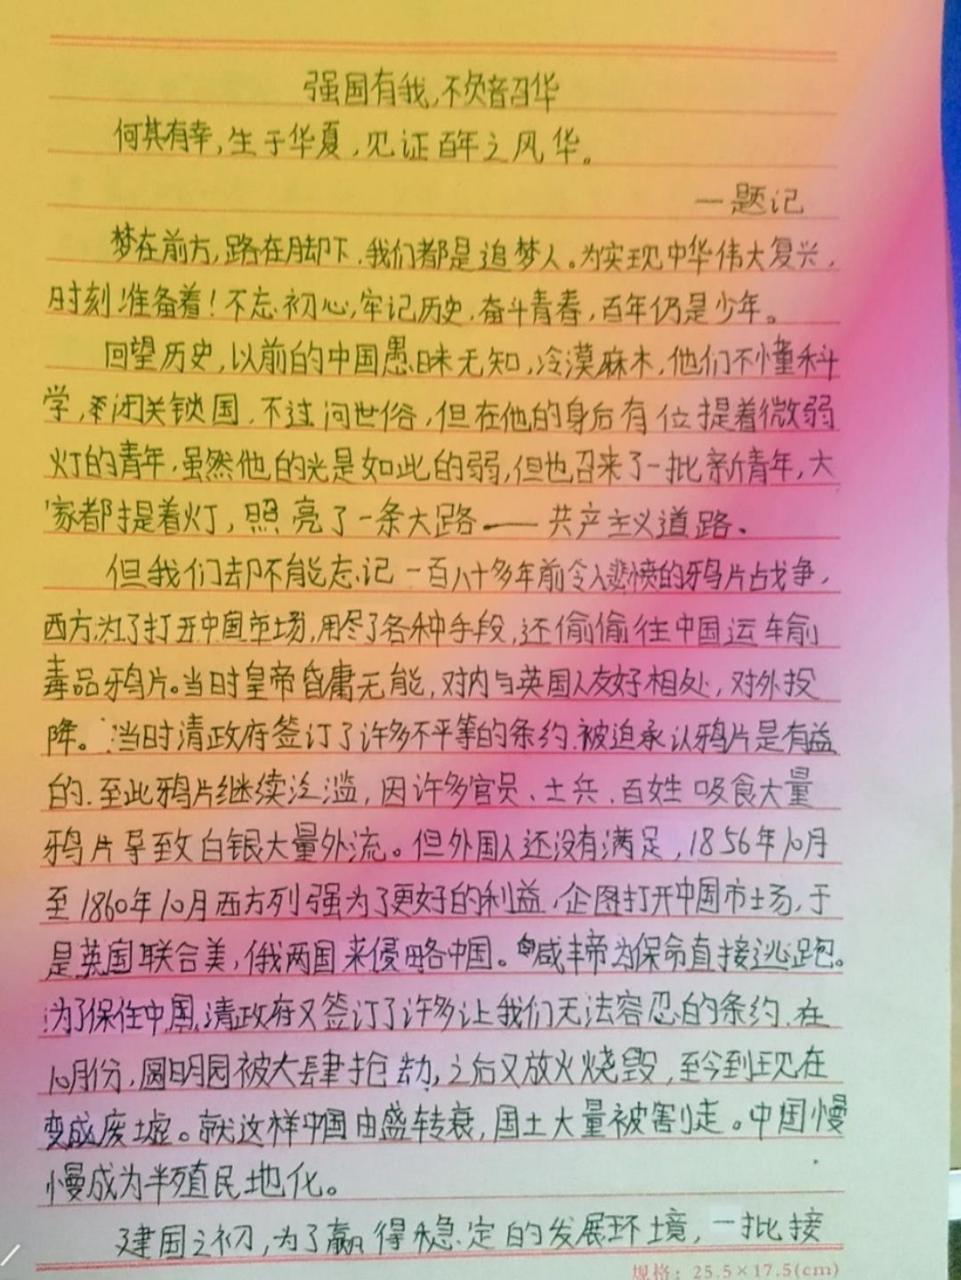 强国有我,不负韶华
何其有幸,生于华夏,见证百年之风华。
一题记
梦在前方,路在脚下,我们都是追梦人。为实现中华伟大复兴,
时刻准备着!不忘初心,牢记历史,奋斗青春,百年仍是少年。
回望历史,以前的中国愚昧无知,冷漠麻木,他们不懂科
学,闭关锁国,不过问世俗,但在他的身后有位提着微弱
灯的青年,虽然他的光是如此的弱,但也召来了一批新青年,大
家都提着灯,照亮了一条大路——共产主义道路、
但我们却不能忘记一百八十多年前令人悲愤的鸦片战争,
西方为了打开中国市场,用尽了各种手段,还偷偷往中国运输
毒品鸦片。当时皇帝昏庸无能,对内与英国人友好相处,对外投
降。当时清政府签订了许多不平等的条约.被迫承认鸦片是有益
的.至此鸦片继续泛滥,因许多官员、士兵、百姓吸食大量
鸦片导致白银大量外流。但外国人还没有满足,1856年10月
至1860年10月西方列强为了更好的利益,企图打开中国市场,于
是英国联合美,俄两国来侵略中国。咸丰帝为保命直接逃跑。
为了保住中国,清政府又签订了许多让我们无法容忍的条约.在
10月份,圆明园被大肆抢劫,之后又放火烧毁,至今到现在
变成废墟。就这样中国由盛转衰,国土大量被割走。中国慢
慢成为半殖民地化。
建国之初,为了赢得稳定的发展环境,一批接
规格:25.5×17.5(cm)